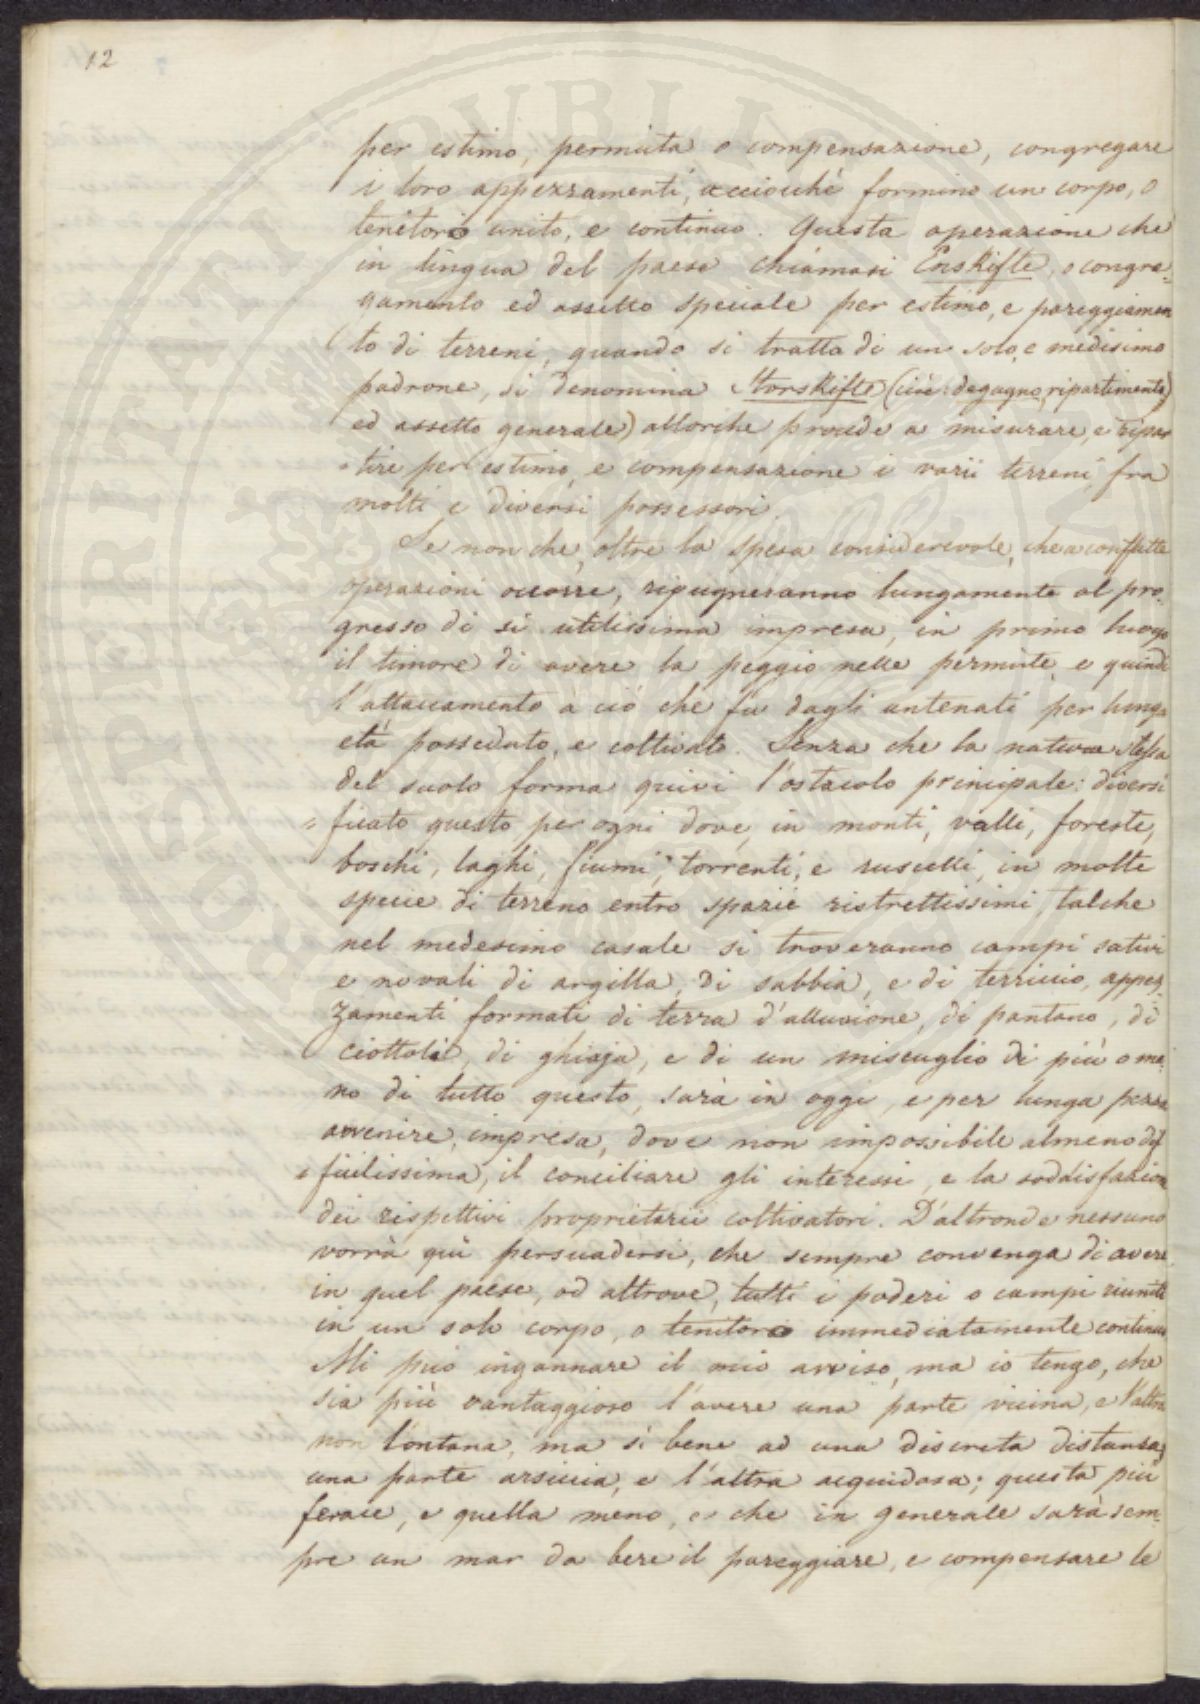 12
per estimo, permuta o compensazione, congregare
i loro appezzamenti, acciocchè formino un corpo, o
tenitorio unito, e continuo. Questa operazione che
in lingua del paese chiamasi Enskifte, o congre-
gamento ed assetto speciale per estimo, e pareggiamen
to di terreni, quando si tratta di un solo, e medesimo
padrone, si denomina Storskifte (cioè: degagno, ripartimento,
ed assetto generale) allorche procede a misurare, e ripar
=tire per estimo, e compensazione i varii terreni fra
molti e diversi possessori.
Se non che, oltre la spesa considerevole, che a consffatte
operazioni occorre, ripugneranno lungamente al pro-
gresso di sì utilissima impresa, in primo luogo
il timore di avere la peggio nelle permute, e quindi
l'attaccamento à ciò che fù dagli antenati per lunga
età posseduto, e coltivato. Senza che la natura stessa
del suolo forma quivi l'ostacolo principale: diversi
=ficato questo per ogni dove, in monti, valli, foreste,
boschi, laghi, fiumi, torrenti, e ruscelli, in molte
specie di terreno entro spazii ristrettissimi, talche
nel medesimo casale si troveranno campi sativi
e novali di argilla, di sabbia, e di terriccio, appez-
zamenti formati di terra d'alluvione, di pantano, di
ciottoli, di ghiaja, e di un miscuglio di più o me-
no di tutto questo, sarà in oggi, e per lunga pezza
avvenire, impresa, dove non impossibile almeno dif
=ficilissima, il conciliare gli interessi, e la soddisfazione
dei rispettivi proprietarii coltivatori. D'altronde nessuno
vorrà quì persuadersi, che sempre convenga di avere
in quel paese, od altrove, tutti i poderi o campi riuniti
in un solo corpo, o tenitorio immediatamente continuo
Mi può ingannare il mio avviso, ma io tengo, che
sia più vantaggioso l'avere una parte vicina, e l'altra
non lontana, ma sì bene ad una discreta distanza,
una parte arsiccia, e l'altra acquidosa; questa più
ferace, e quella meno, e che in generale sarà sem-
pre un mar da bere il pareggiare, e compensare le